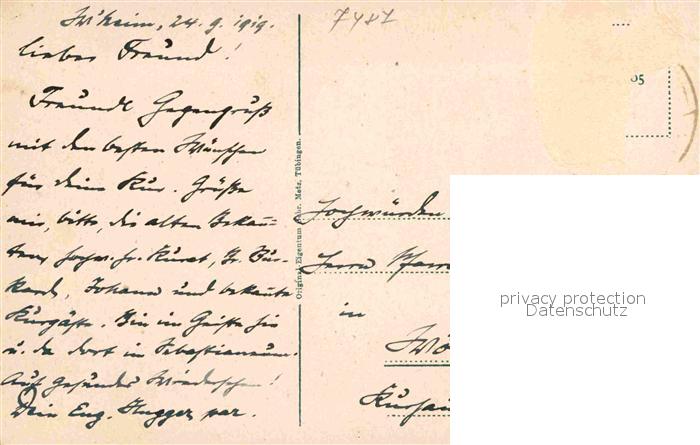 24.9.1919.
7481
Lieber Freund!
Freundl. Gegengruß
mit den besten Wünschen
für deine Kur. Grüße
mir, bitte, die alten Bekan=
ten, hochw. H. Kurat, Hr. Bur-
kard, Johann und bekannte
Kurgäste. Bin im Geiste hie
u. da dort im Sebastianeum.
Auf gesundes Wiedersehen!
Dein Eug. Hugger, par.
Original-Eigentum Gebr. Metz, Tübingen.
05
Hochwürden
Herrn Pfarr
in
Wö
Kurhau
privacy protection
Datenschutz